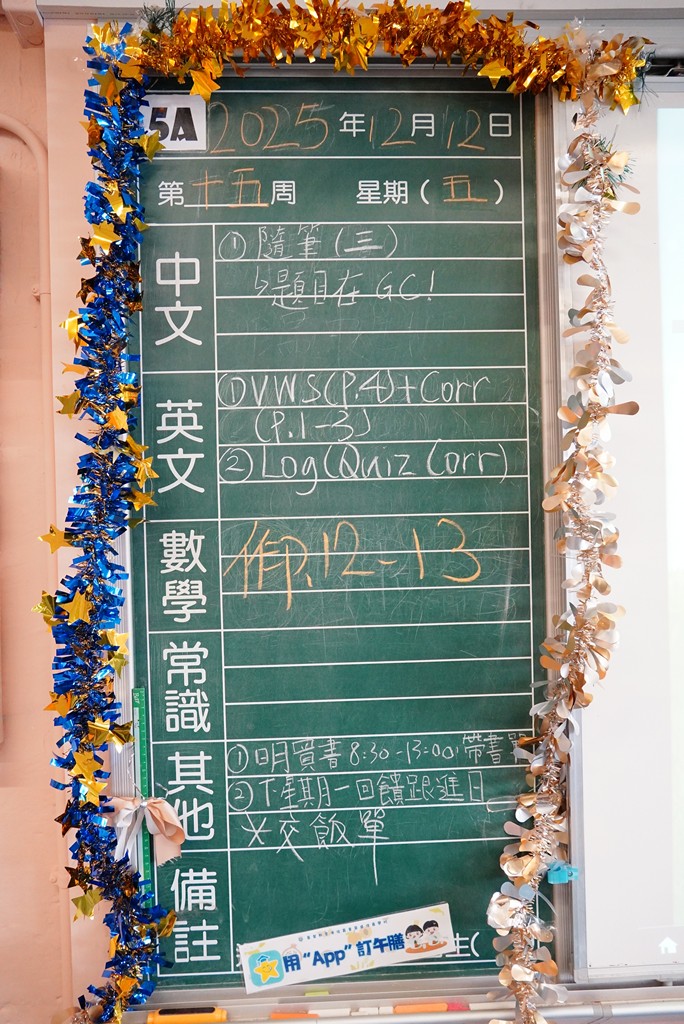 5A 2025年12月12日
第十五周 星期(五)
中文
① 隨筆(三)
↳題目在 GC!
英文
① VWS(P.4)+Corr
(P.1-3)
② Log(Quiz Corr)
數學
作P.12-13
常識
其他
① 明買書8:30-13:00,帶書單
② 下星期一回饋跟進日
*交飯單
備註
用“App”訂午膳
生(